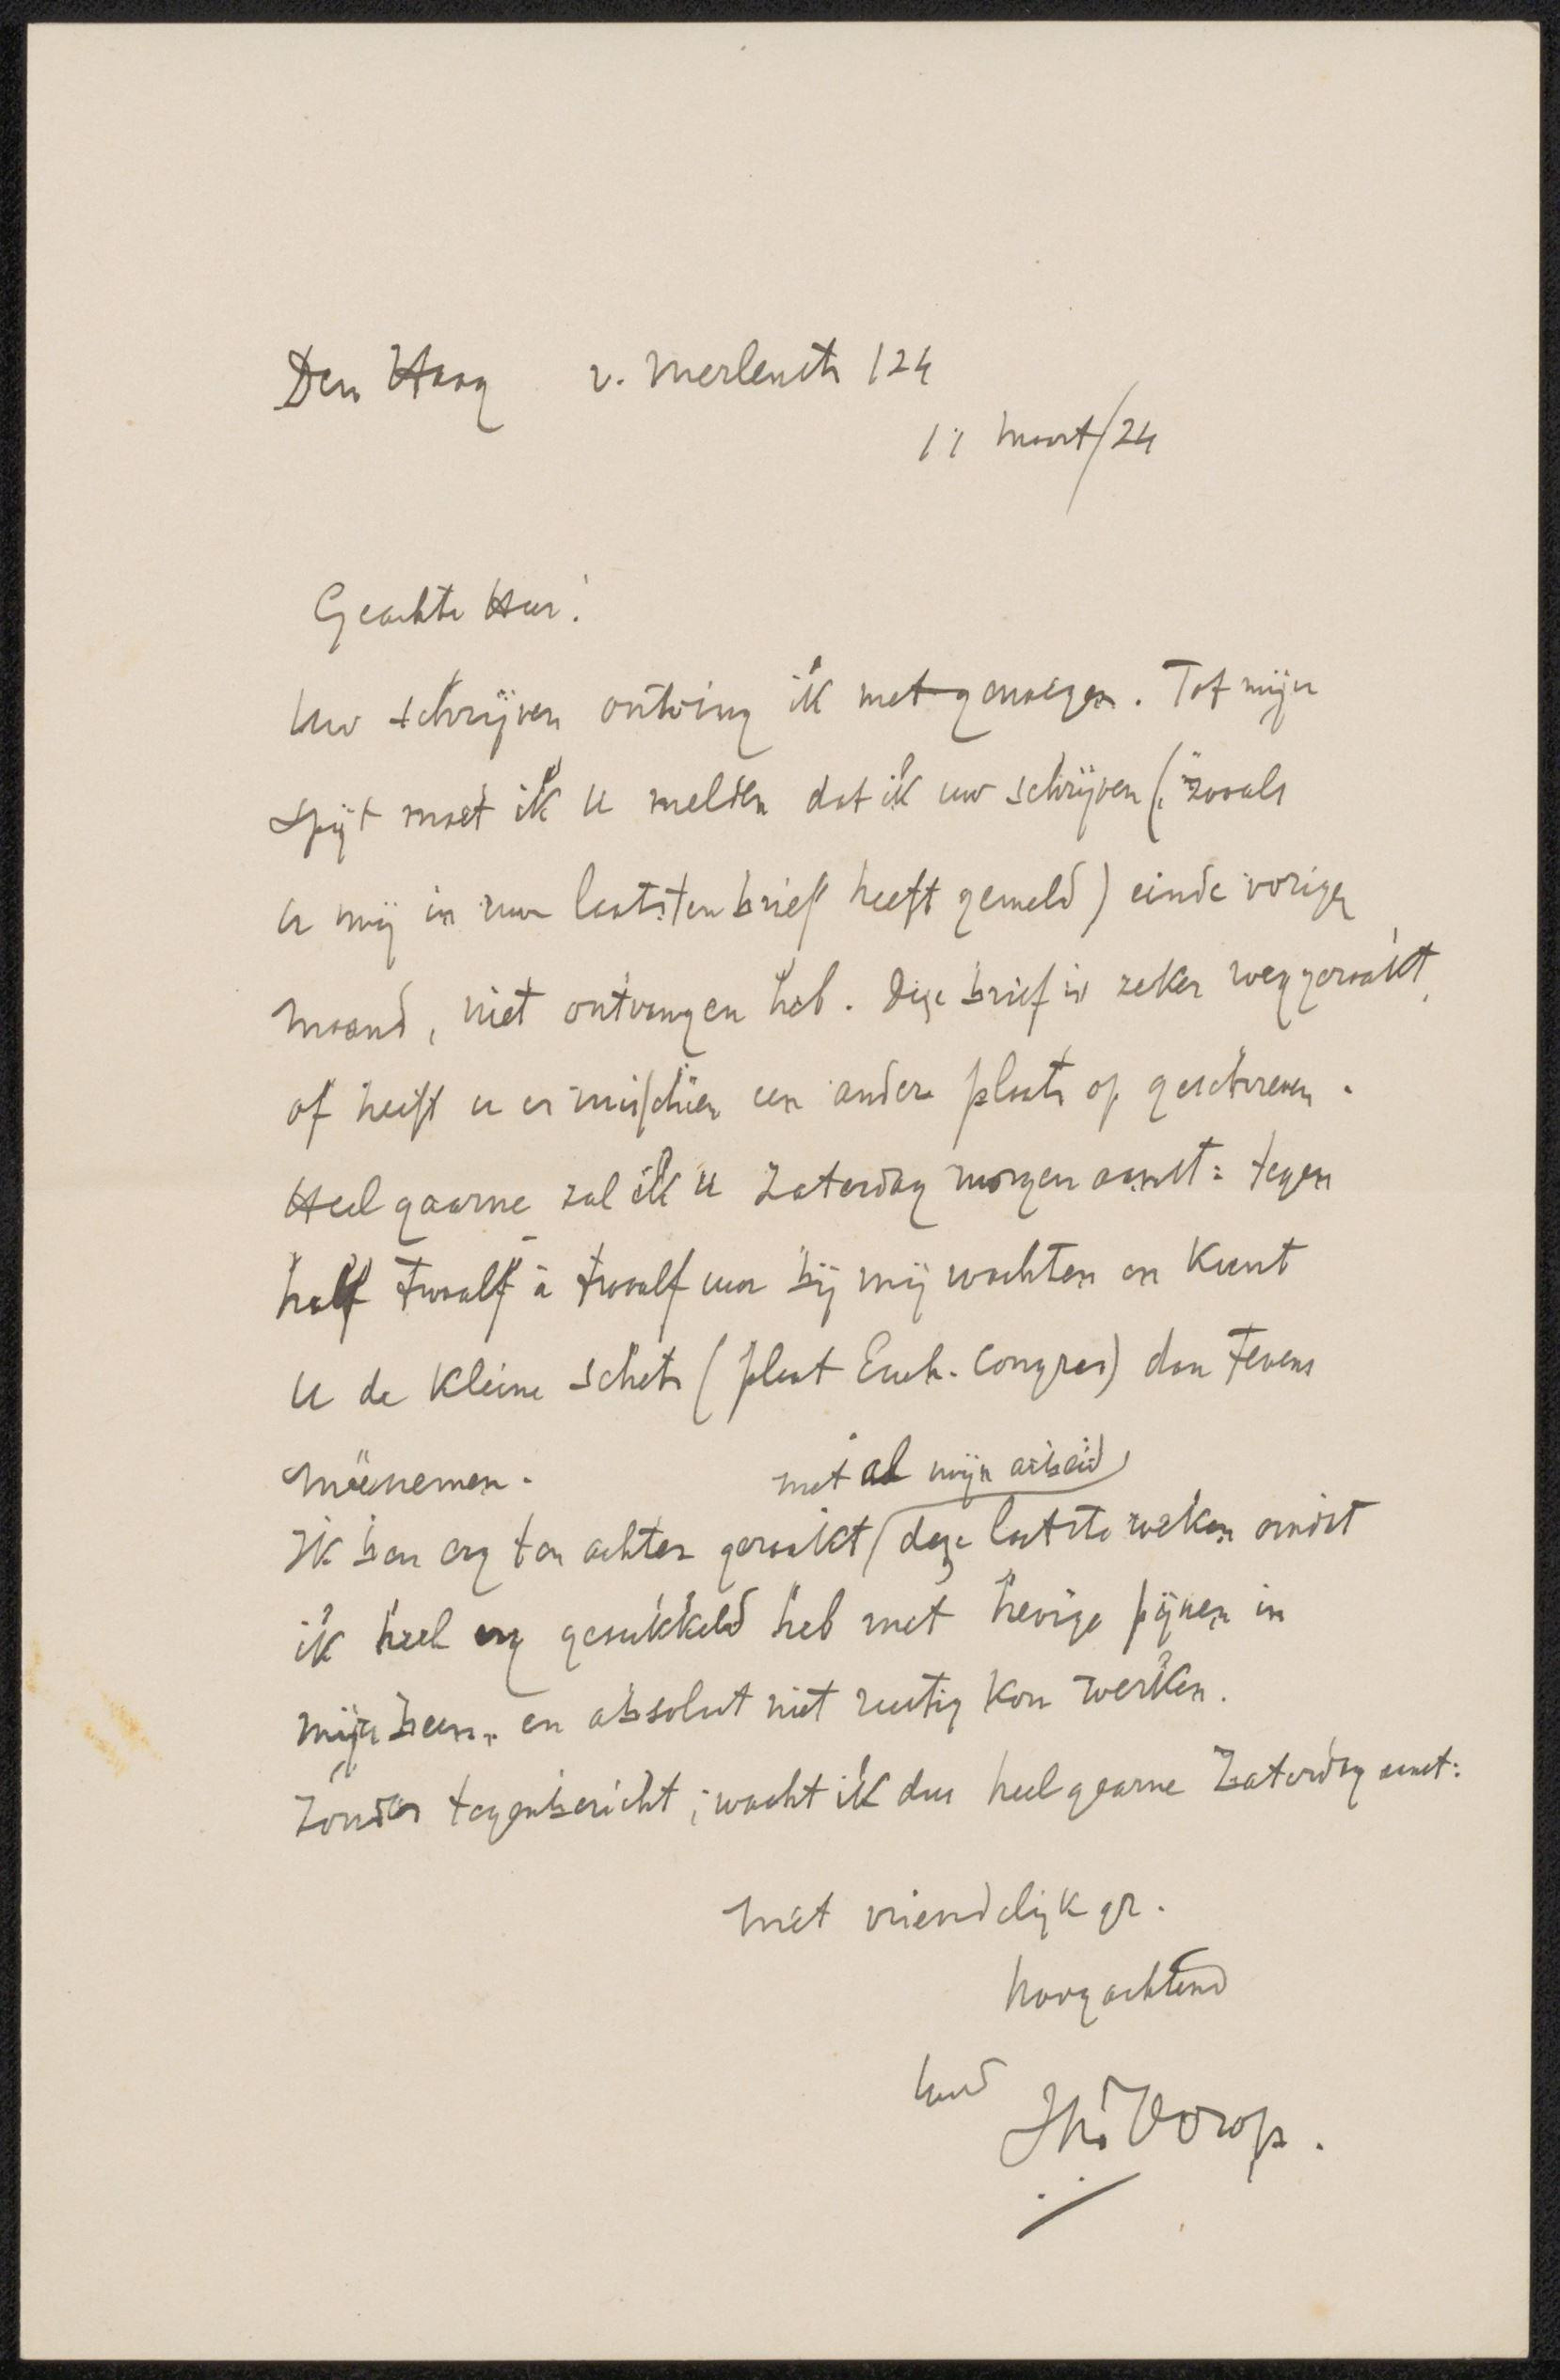 Den Haag v. Merlenstr 124
11 maart/24
Geachte Heer!
Uw schrijven ontving ik met genoegen. Tot mijn
spijt moet ik u melden dat ik uw schrijven (zooals
u mij in uw laatsten brief heeft gemeld) einde vorige
maand, niet ontvangen heb. Deze brief is zeker weggeraakt,
of heeft u er misschien een ander plaats op geschreven.
Heel gaarne zal ik u Zaterdag morgen aanst: tegen
half twaalf à twaalf uur bij mij wachten en kunt
u de kleine schets (plaat Euch. Congres) dan tevens
meênemen.
met al mijn arbeid
Ik ben erg ten achter geraakt deze laatste weken omdat
ik heel erg gesukkeld heb met hevige pijnen in
mijn been, en absoluut niet rustig kon werken.
Zonder tegenbericht, wacht ik dus heel gaarne Zaterdag aanst:
Met vriendelijk gr.
hoogachtend
Uwd
JThToorop.